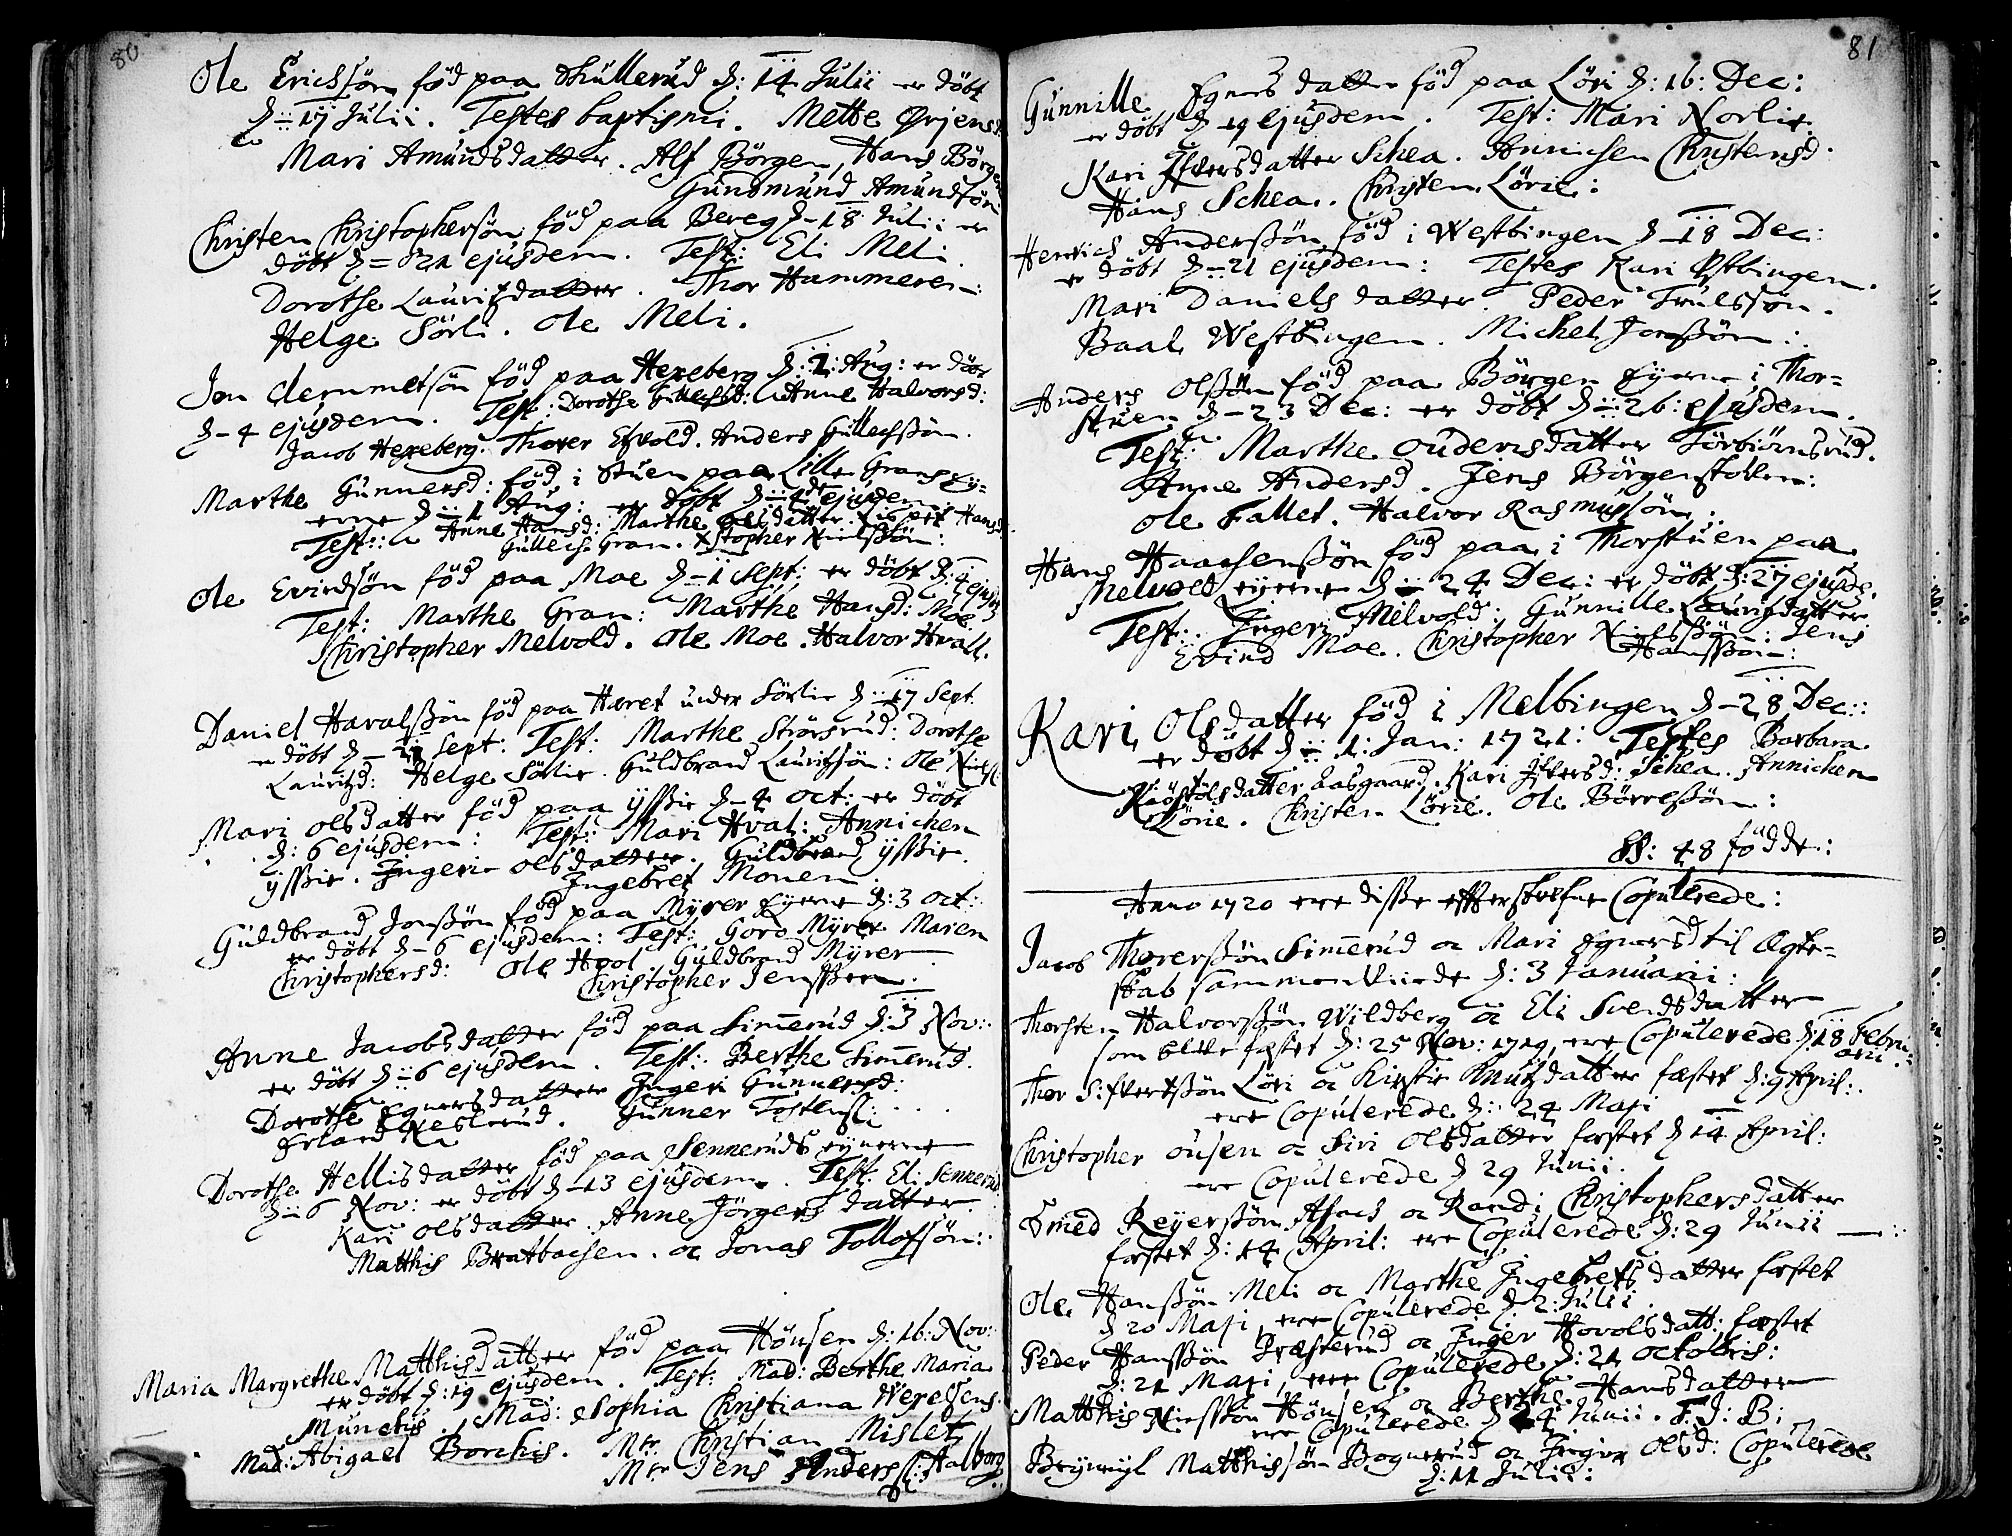 80
Ole Erichsön föd paa Skullerud d: 14 Julii er döbt
d: 17 Julii. Testes baptismi. Mette Örjensd
Mari Amundsdatter. Alf Börgen, Hans Börgen
Gundmund Amundsön
Christen Christophersön föd paa Bereg d 18 Julii er
döbt d 21 ejusdem. Test: Eli Meli.
Dorothe Lauritzdatter. Thor Hammeren:
Helge Sörli. Ole Meli.
Jon Clemmetsön föd paa Hexeberg d: 1: Aug: er döbt
d 4 ejusdem. Test: Dorothe Gullechsd: Anne Halvorsd:
Jacob Hexeberg. Thorer Efvold. Anders Gullechssön.
Marthe Gunnersd: föd i Stuen paa Lille Grans Ey=
erne d 1 Aug: er döbt d 4 ejusdem
Test: Anne Hansd: Marthe Olsdatter. Hans
Gullech Gran. Xstopher Nielssön:
Ole Evindsön föd paa Moe d 1 Sept: er döbt d: 4 ejusd
Test: Marthe Gran: Marthe Hansd: Moe
Christopher Melvold. Ole Moe. Halvor Hvall.
Daniel Havalssön föd paa Haret under Sörlie d 17 Sept
er döbt d 21 Sept: Test: Marthe Strörsrud: Dorothe
Lauritzd: Helge Sörlie. Guldbrand Lauritzsön: Ole Nielss:
Mari Olsdatter föd paa Ÿssie d 4 Oct: er döbt
d: 6 ejusdem: Test: Mari Hval: Annichen
Ÿssie. Ingeri Olsdatter. Guldbrand Ÿssie.
Ingebret Monen.
Guldbrand Jonssön föd paa Myrer Eyerne d: 3 Oct:
er döbt d 6 ejusdem: Test: Goro Myrer Maren
Christophersd: Ole Hvol Guldbrand Myrer
Christopher Jenssen.
Anne Jacobsdatter föd paa Simerud d: 3 Nov:
er döbt d 6 ejusdem. Test: Berthe Simerud.
Dorothe Egnersdatter Ingeri Gunnersd:
Erland Neslerud. Gunner Tostenss:
Dorothe Hellisdatter föd paa Sennerudseyerne
d 6 Nov: er döbt d 13 ejusdem. Test: Eli Sennerud.
Kari Olsdatter. Anne Jörgensdatter.
Matthis Bratbachen. oc Jonas Tollofsön:
Maria Margrethe Matthisdatter föd paa Hönsen d: 16: Nov:
er döbt d: 19 ejusdem. Test: Mad: Berthe Maria
Munchs. Mad: Sophia Christiana Werelsens.
Mad: Abigael Borchis. Mr Christian Mislet,
Mr Jens Anderss: Halborg
81
Gunnille Egnersdatter föd paa Löri d: 16: Dec:
er döbt d 19 ejusdem. Test: Mari Norlie
Kari Ifversdatter Schea. Annichen Christensd.
Hans Schea. Christen Lörie:
Henrich Anderssön föd i Westbingen d 18 Dec:
er döbt d 21 ejusdem: Testes Kari Östbingen.
Mari Danielsdatter. Peder Trulssön.
Baal Westbingen. Michel Jonssön:
Anders Olssön föd paa Börgen Eyerne i Thor=
stuen d 23 Dec: er döbt d 26: ejusdem.
Test: Marthe Oudensdatter Törbiörnsrud.
Anne Andersd. Jens Börgenstollen:
Ole Fallet. Halvor Rasmussön.
Hans Haachenssön föd paa i Thorstuen paa
Melvold eyerne d 24 Dec: er döbt d: 27 ejusde.
Test: Ingeri Melvold: Gunnille Lauritzdatter
Evind Moe. Christopher Nielssön: Jens
Hanssön:
Kari Olsdatter föd i Melbingen d 28 Dec:
er döbt d 1: Jan: 1721: Testes Barbara
Kiöstolsdatter Aasgaard. Kari Ifversd: Schea. Annichen
Lörie. Christen Lörie. Ole Börressön:
S: 48 födde:
Anno 1720 ere disse efterskrefne Copulerede:
Jacob Thorerssön Simerud oc Mari Egnersd til Ægte=
skab sammenviede d: 3 Januarii:
Thorsten Halvorssön Wildberg oc Eli Svendsdatter
som bleve fæstet d: 25 Nov: 1719, ere Copulerede d: 18 Febru
arii
Thor Sifvertssön Löri oc Kirstie Knutzdatter fæstet d: 9 April:
ere Copulerede d: 24 Maji
Christopher Ousen oc Siri Olsdatter fæstet d 14 April:
ere Copulerede d 29 Junii.
Smed Reyerssön Asnes oc Randi Christophersdatter
fæstet d: 14 April: ere Copulerede d: 29 Junii
Ole Hanssön Meli oc Marthe Ingebretsdatter fæstet
d 20 Maji, ere Copulerede d 2: Julii.
Peder Hanssön Præsterud oc Inger Hovolsdatt: fæstet
d: 21 Maji, ere Copulerede d: 21 Octobris:
Matthis Nielssön Hönsen oc Berthe Hansdatter
ere Copulerede d 24 Junii. F: J: B:
Brynnyl Matthissön Bognerud oc Ingier Olsd: Copulerede
d: 11 Julii: